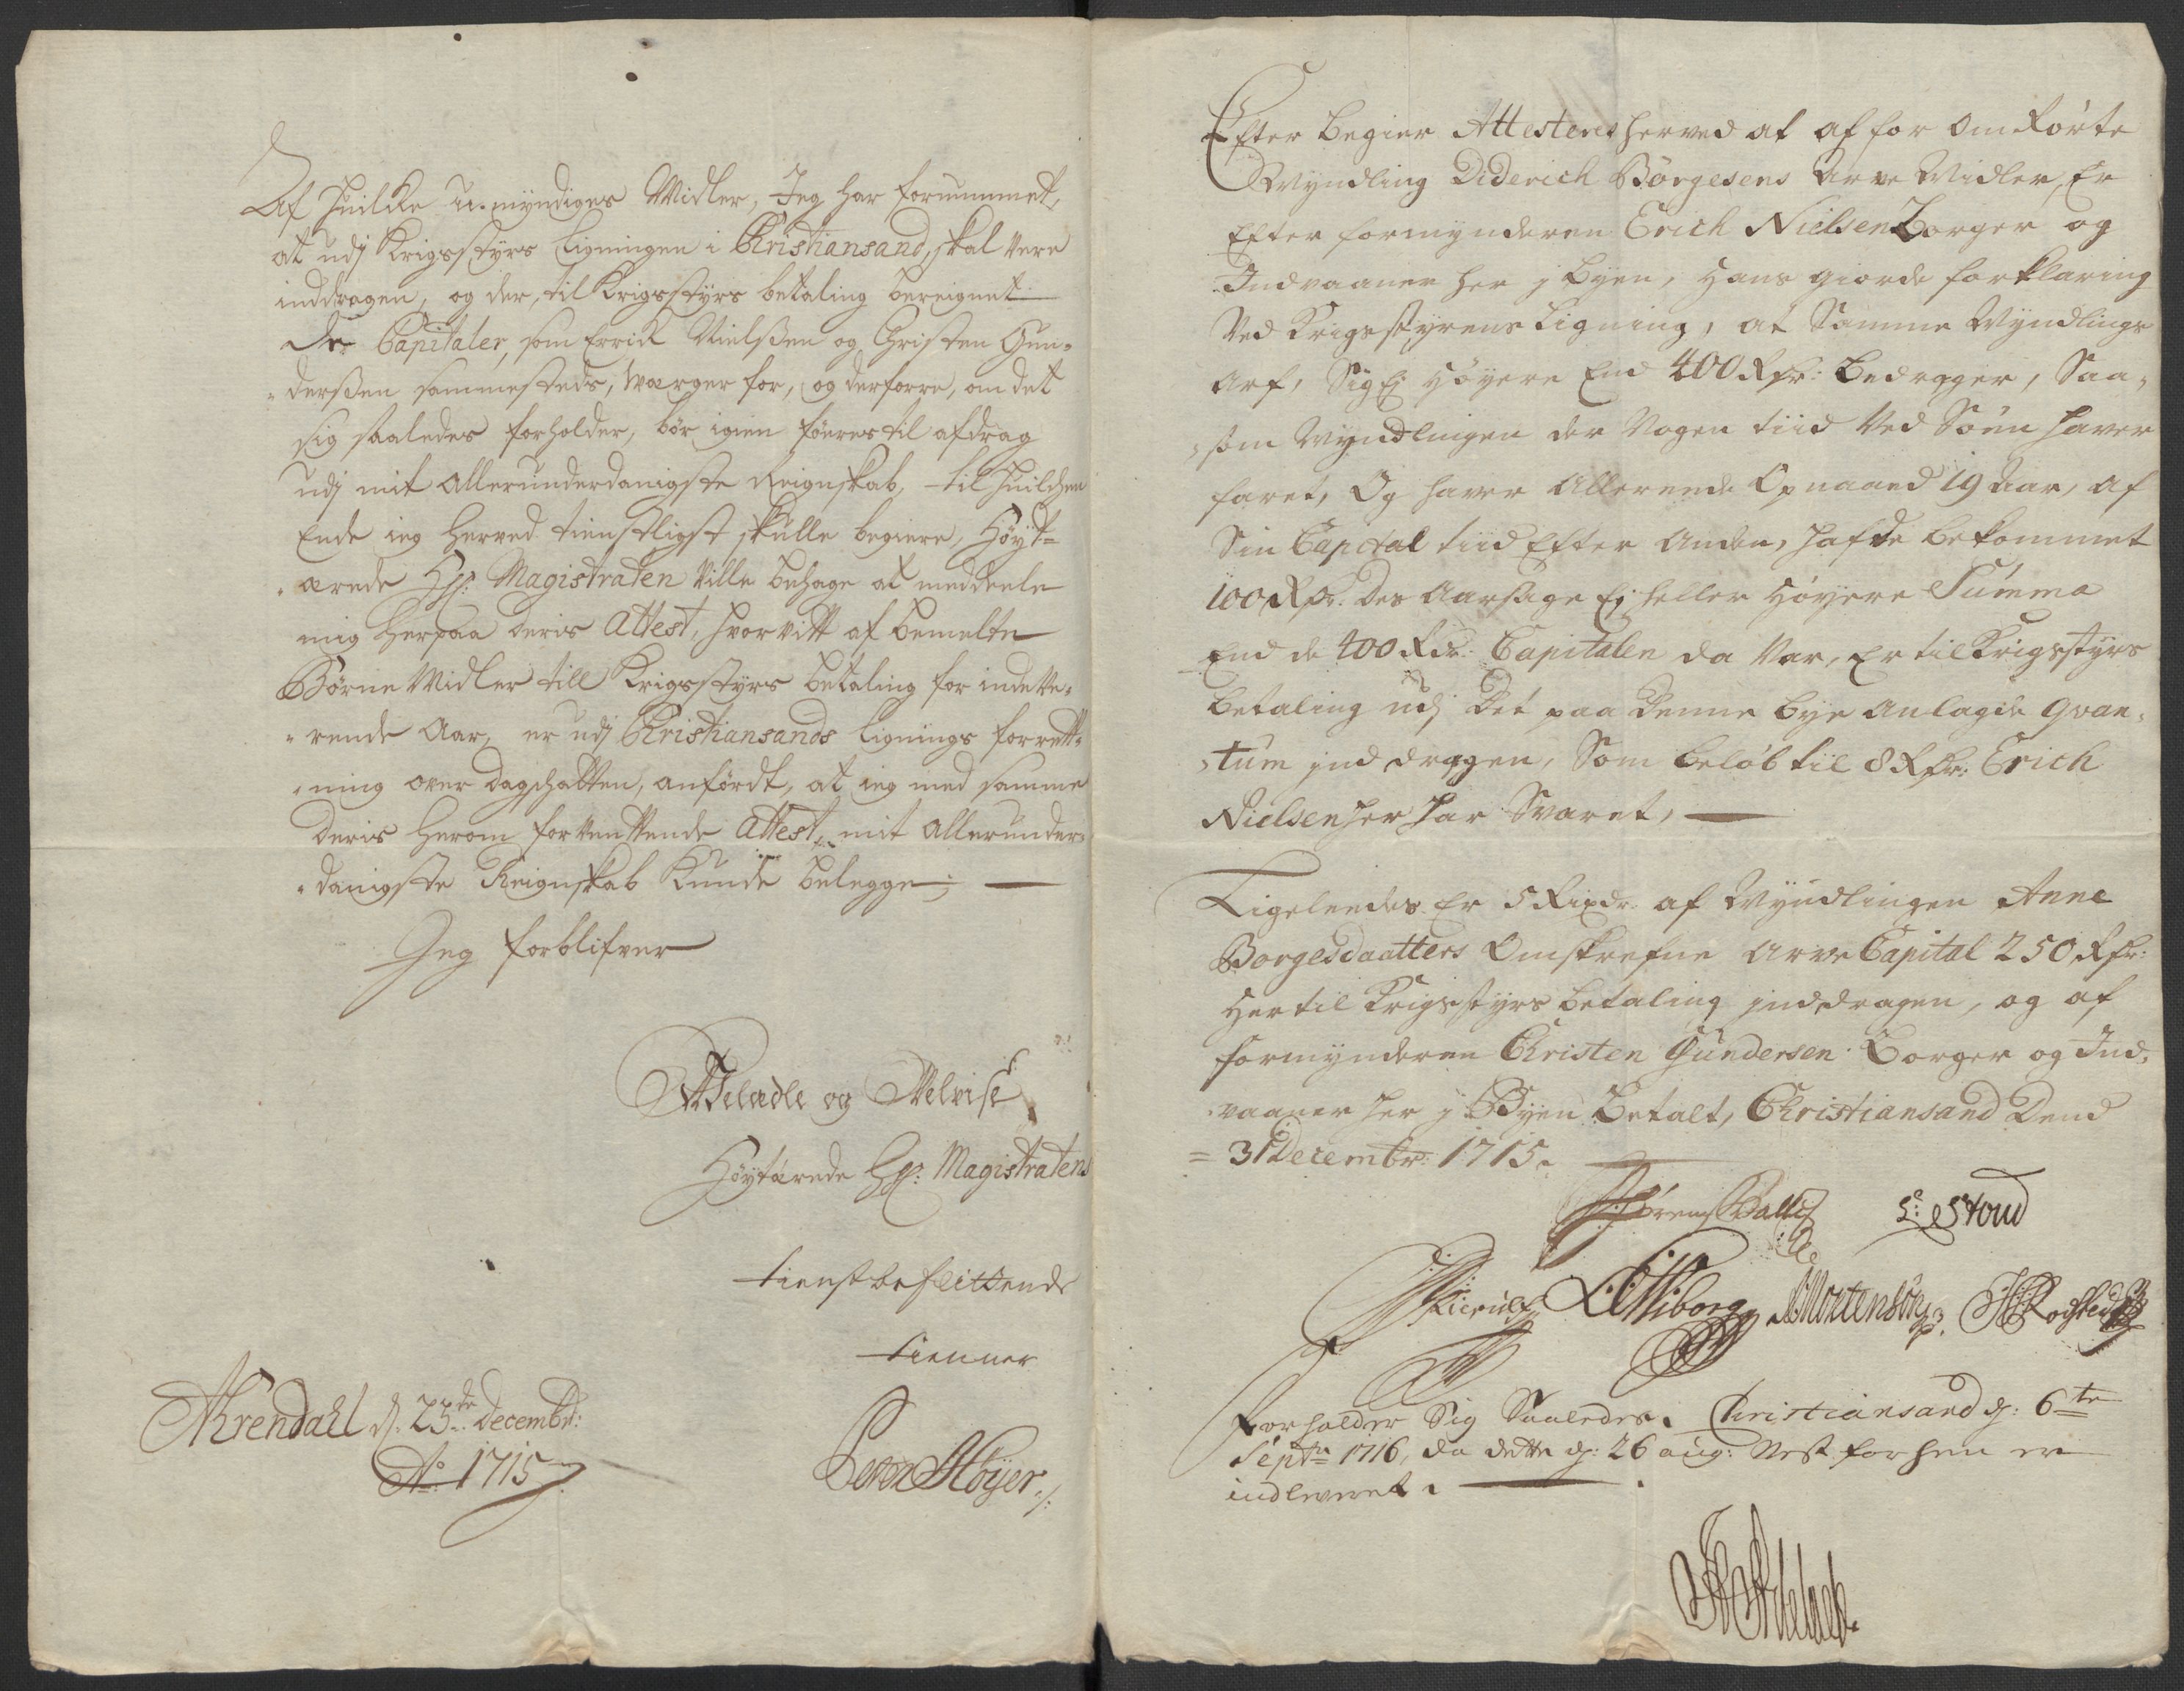 Af huilke u-myndiges Midler, Jeg har fornummet,
at udj Krigsstyrs Ligningen i Christiansand, skal vere
inddragen, og der, til Krigsstyrs betaling bereignet
de Capitaler, som Errick Nielssen og Christen Gun-
derssen sammesteds, werger for, og derforre, om det
sig saaledes forholder, bør igien føeres til afdrag
udj mit allerunderdanigste Reignskab, til huilchen
Ende ieg herved tienstligst skulle begiere, Høyt-
ærede Hr: Magistraten ville behage at meddeele
mig herpaa deris Attest, hvorvitt af bemelte
Børne Midler till Krigsstyrs betaling for indeve-
rende Aar, er udj Christiansands Lignings forrett-
ning over dagschatten, anførdt, at ieg med samme
deris herom forventende Attest, mit allerunder-
danigste Reignskab kunde belegge;
Jeg forblifver
WelEdle og Velvise
Høytærede Hr: Magistratens
tienstbeflittende
tienner
Peter Høyer
Ahrendahl d. 23de Decembr:
Ao 1715
Efter begier Attesteres herved at af for Omrørte
Myndling Diderich Børgesens Arve Midler, Er
Efter formynderen Erich Nielsen Borger og
Indvaaner her j byen, hans giorde forklaring
Ved Krigsstyrens Ligning, at Samme Myndlings
Arf, Sig Ej høyere End 400 Rdr: bedrager, Saa-
som Myndlingen der Nogen tiid Ved Søen haver
faret, Og haver allereede Opnaaed 19 Aar, af
Sin Capital tiid Efter anden, hafde bekommet
100 Rdr. Des Aarsage Ej heller høyere Summa
End de 400 Rdr: Capitalen da Var, Er til Krigsstyrs
betaling udj Det paa denne bye anlagde Qvan-
tum jnddragen, Som beløb til 8 Rdr: Erich
Nielsen her har Svaret,
Ligeleedes Er 5 Rixdr. af Myndlingen Anne
Borgesdaatters Omskrefne Arve Capital 250 Rdr:
her til Krigsstyrs betaling jnddragen, og af
formynderen Christen Gundersen Borger og Ind-
vaaner her j Byen betalt, Christiansand Dend
31 Decembr: 1715.
Sørens Balli
S: Stoud
Kierulf
Wiborg
Mortensøn
Rodsted
Forholder Sig Saaledes. Christiansand d: 6te
Septr 1716, da dette d: 26 aug: Nest forhen er
indleveret.